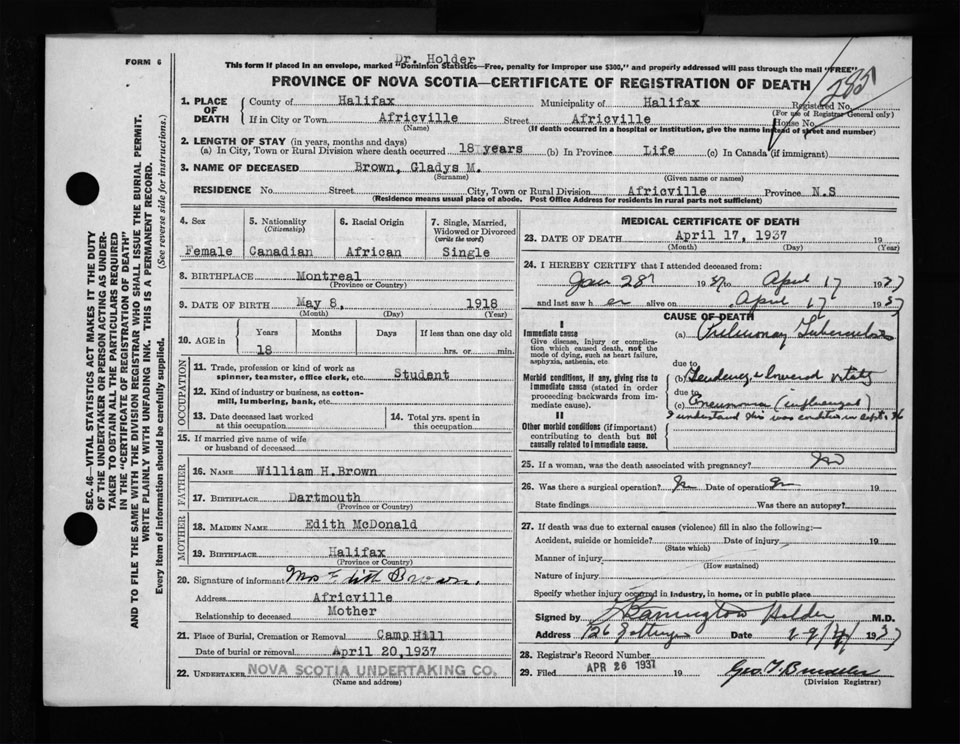 FORM 6
Dr. Holder
This form if placed in an envelope, marked "Dominion Statistics—Free, penalty for improper use $300," and properly addressed will pass through the mail "FREE"
PROVINCE OF NOVA SCOTIA—CERTIFICATE OF REGISTRATION OF DEATH
285
1. PLACE OF DEATH
County of Halifax Municipality of Halifax Registered No.
(For use of Registrar General only)
If in City or Town Africville Street Africville House No.
(Name) (If death occurred in a hospital or institution, give the name instead of street and number)
2. LENGTH OF STAY (in years, months and days)
(a) In City, Town or Rural Division where death occurred 18 years (b) In Province Life (c) In Canada (if immigrant)
3. NAME OF DECEASED Brown, Gladys M.
(Surname) (Given name or names)
RESIDENCE No. Street City, Town or Rural Division Africville Province N.S
(Residence means usual place of abode. Post Office Address for residents in rural parts not sufficient)
4. Sex Female
5. Nationality (Citizenship) Canadian
6. Racial Origin African
7. Single, Married, Widowed or Divorced (write the word) Single
8. BIRTHPLACE Montreal
(Province or Country)
9. DATE OF BIRTH May 8, 1918
(Month) (Day) (Year)
10. AGE in Years Months Days If less than one day old
18 hrs. or min.
OCCUPATION
11. Trade, profession or kind of work as spinner, teamster, office clerk, etc. Student
12. Kind of industry or business, as cotton-mill, lumbering, bank, etc.
13. Date deceased last worked at this occupation
14. Total yrs. spent in this occupation
15. If married give name of wife or husband of deceased
FATHER
16. NAME William H. Brown
17. BIRTHPLACE Dartmouth
(Province or Country)
MOTHER
18. MAIDEN NAME Edith McDonald
19. BIRTHPLACE Halifax
(Province or Country)
20. Signature of informant Mrs Edith Brown.
Address Africville
Relationship to deceased Mother
21. Place of Burial, Cremation or Removal Camp Hill
Date of burial or removal April 20, 1937
22. UNDERTAKER NOVA SCOTIA UNDERTAKING CO.
(Name and address)
MEDICAL CERTIFICATE OF DEATH
23. DATE OF DEATH April 17, 1937 19
(Month) (Day) (Year)
24. I HEREBY CERTIFY that I attended deceased from:
Jan 28 1937 to April 17 1937
and last saw her alive on April 17 1937
CAUSE OF DEATH
I
Immediate cause
Give disease, injury or complication which caused death, not the mode of dying, such as heart failure, asphyxia, asthenia, etc.
(a) Pulmonary Tuberculosis
due to
Morbid conditions, if any, giving rise to immediate cause (stated in order proceeding backwards from immediate cause).
(b) Tendency & lowered vitality
due to
(c) Pneumonia (influenzal)
I understand this was condition in Sept 36
II
Other morbid conditions (if important) contributing to death but not causally related to immediate cause.
25. If a woman, was the death associated with pregnancy? No
26. Was there a surgical operation? No Date of operation 19
State findings Was there an autopsy?
27. If death was due to external causes (violence) fill in also the following:—
Accident, suicide or homicide? Date of injury 19
(State which)
Manner of injury
(How sustained)
Nature of injury
Specify whether injury occurred in industry, in home, or in public place
Signed by Holder M.D.
Address 126 Gottingen Date 1937
28. Registrar's Record Number
29. Filed APR 26 1937 19
(Division Registrar)
SEC. 46—VITAL STATISTICS ACT MAKES IT THE DUTY
OF THE UNDERTAKER OR PERSON ACTING AS UNDER-
TAKER TO OBTAIN ALL THE PARTICULARS REQUIRED
IN THE "CERTIFICATE OF REGISTRATION OF DEATH"
AND TO FILE THE SAME WITH THE DIVISION REGISTRAR WHO SHALL ISSUE THE BURIAL PERMIT.
WRITE PLAINLY WITH UNFADING INK. THIS IS A PERMANENT RECORD.
Every item of information should be carefully supplied. (See reverse side for instructions.)